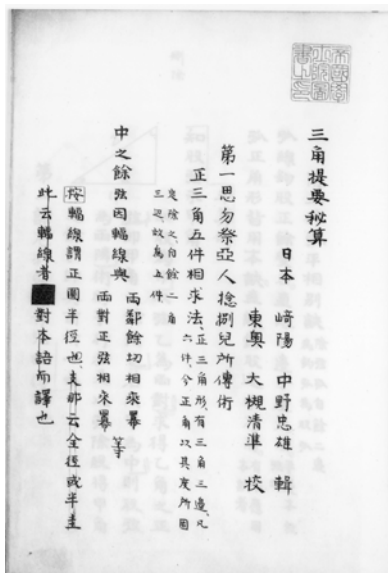 帝國學士院圖書之印
三角提要秘算
日本 﨑陽 中野忠雄 輯
東奥 大槻清準 校
第一思勿祭亞人捻捌兒所傳術
正三角五件相求法 正三角形、有三角三邊、凡
六件、今正角以其度所固
定除之、自餘二角
三辺故為五件
中之餘弦因輻線與 兩鄰餘切相乘冪
兩對正弦相乘冪 等
按輻線謂正圓半徑也、支那云全徑或半圭
此云輻線者對本語而譯也